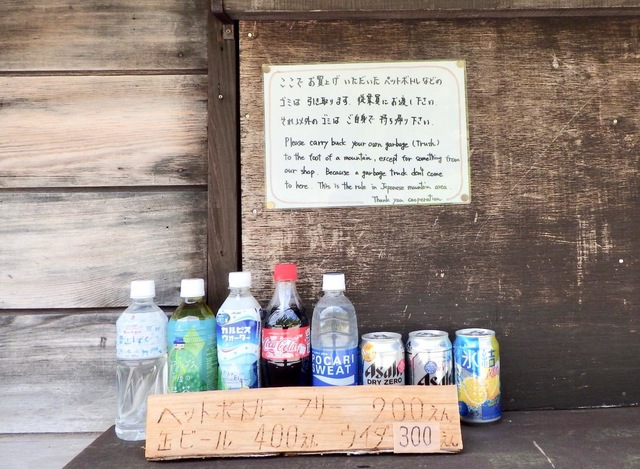 ここで お買上げ いただいた ペットボトルなどの
ゴミは 引き取ります. 従業員にお渡し下さい.
それ以外のゴミは ご自身で 持ち帰り下さい.
Please carry back your own garbage (Trush)
to the foot of a mountain, except for something from
our shop. Because a garbage truck don't come
to here. This is the rule in Japanese mountain area.
Thank you cooperation.
カルピス
ウォーター
Coca-Cola
POCARI
SWEAT
Asahi
DRY ZERO
Asahi
氷結
ペットボトル・フリー 900えん
缶ビール 400えん ウイダー 300えん